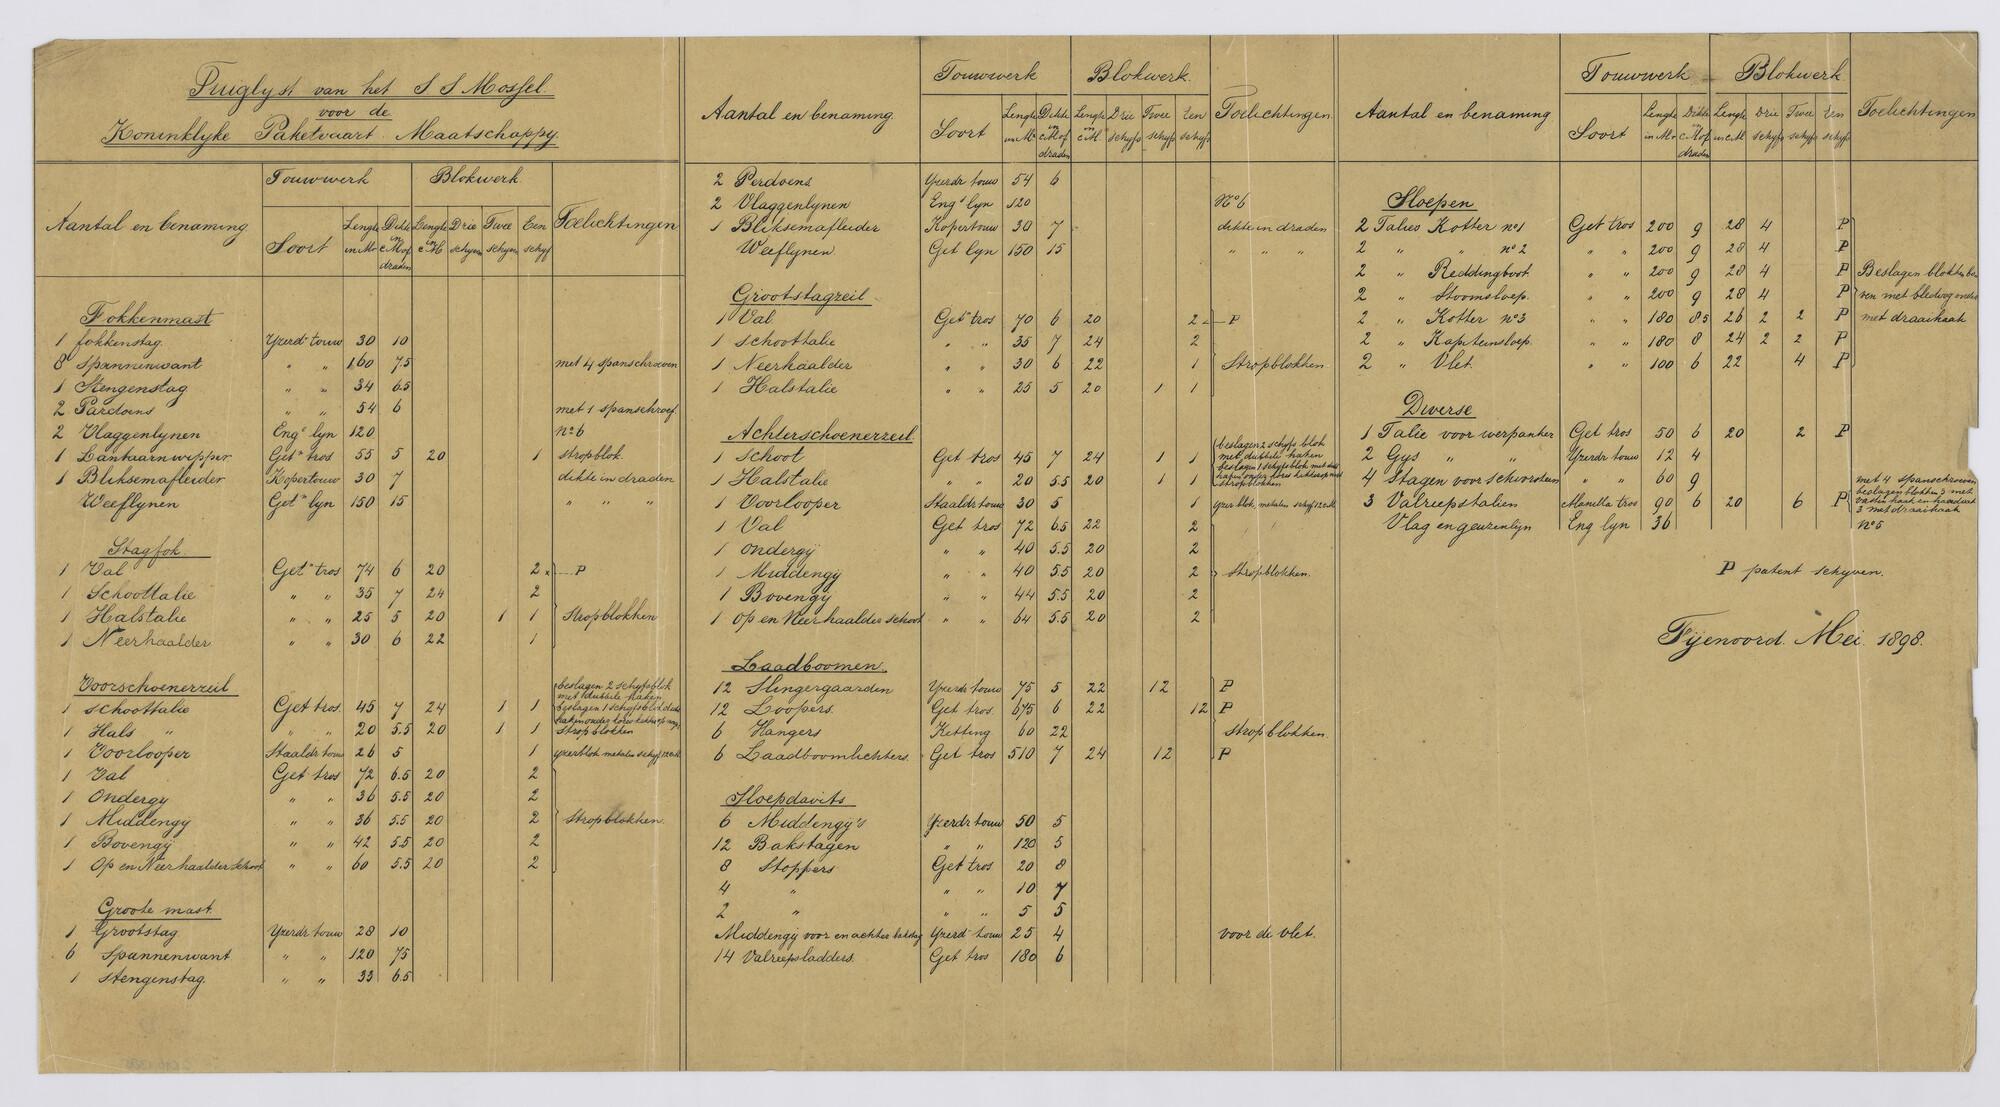 Tuiglyst van het S S Mossel.
voor de
Koninklyke Paketvaart Maatschappy.
Aantal en benaming Touwwerk Blokwerk Toelichtingen
Soort Lengte in M. Dikte in c.M of draden Lengte in c.M Drie schyven Twee schyven Een schyf
Fokkenmast
1 fokkenstag. Yzerdr touw 30 10
8 Spannenwant " " 160 7.5 met 4 spanschroeven
1 Stengenstag " " 34 6.5
2 Pardoens " " 54 6 met 1 spanschroef.
2 Vlaggenlynen Eng. lyn 120 No 6
1 Lantaarnwipper Get. tros 55 5 20 1 stropblok.
1 Bliksemafleider Kopertouw 30 7 dikte in draden
Weeflynen Get. lyn 150 15 " " "
Stagfok.
1 Val Get. tros 74 6 20 2 P
1 Schoottalie " " 35 7 24 2
1 Halstalie " " 25 5 20 1 1 Stropblokken
1 Neerhaalder " " 30 6 22 1
Voorschoenerzeil
beslagen 2 schyfsblok
met dubbele haken
1 schoottalie Get tros. 45 7 24 1 1 beslagen 1 schyfsblok
1 Hals " " " 20 5.5 20 1 1 Stropblokken
1 Voorlooper Staaldr touw 26 5 1 yzerblok metalen schyf 12 c.M.
1 Val Get tros 72 6.5 20 2
1 Ondergy " " 36 5.5 20 2
1 Middengy " " 36 5.5 20 2 Stropblokken.
1 Bovengÿ " " 42 5.5 20 2
1 Op en Neerhaalder Schoot " " 60 5.5 20 2
Groote mast.
1 Grootstag Yzerdr touw 28 10
6 Spannenwant " " 120 75
1 Stengenstag. " " 33 6.5
Aantal en benaming Touwwerk Blokwerk. Toelichtingen.
Soort Lengte in M. Dikte in c.M of draden Lengte c.M. Drie schyfs Twee schyfs Een schyfs
2 Perdoens Yzerdr touw 54 6
2 Vlaggenlynen Eng. lyn 120 No 6
1 Bliksemafleider Kopertouw 30 7 dikte in draden
Weeflynen Get lyn 150 15 " " "
Grootstagzeil
1 Val Get. tros 70 6 20 2 P
1 schoottalie " " 35 7 24 2
1 Neerhaalder " " 30 6 22 1 Stropblokken.
1 Halstalie " " 25 5 20 1 1
Achterschoenerzeil.
beslagen 2 schyfs blok
met dubbele haken
1 Schoot Get tros 45 7 24 1 1 beslagen 1 schyfsblok met
1 Halstalie " " 20 5.5 20 1 1 stropblokken
1 Voorlooper Staaldr touw 30 5 1 yzer blok, metalen schyf 12 c.M.
1 Val Get tros 72 6.5 22 2
1 ondergÿ " " 40 5.5 20 2
1 Middengÿ " " 40 5.5 20 2 Stropblokken.
1 Bovengÿ " " 44 5.5 20 2
1 op en Neerhaalder schoot " " 64 5.5 20 2
Laadboomen.
12 Slingergaarden Yzerdr touw 75 5 22 12 P
12 Loopers. Get tros. 675 6 22 12 P
6 Hangers Ketting 60 22 Stropblokken.
6 Laadboomlichters. Get tros 510 7 24 12 P
Sloepdavits
6 Middengÿ's Yzerdr touw 50 5
12 Bakstagen " " 120 5
8 Stoppers Get tros 20 8
4 " " " 10 7
2 " " " 5 5
Middengÿ voor en achter bakstag Yzerd touw 25 4 voor de vlet.
14 Valreepsladders. Get tros 180 6
Aantal en benaming Touwwerk Blokwerk Toelichtingen
Soort Lengte in M. Dikte in c.M of draden Lengte in c.M Drie schyfs Twee schyfs Een schyfs
Sloepen
2 Talies Kotter no 1 Get tros 200 9 28 4 P
2 " " no 2 " " 200 9 28 4 P
2 " Reddingboot " " 200 9 28 4 P Beslagen blokken bo
2 " Stoomsloep. " " 200 9 28 4 P ven met
2 " Kotter no 3 " " 180 8.5 26 2 2 P met draaihaak
2 " Kapiteinsloep. " " 180 8 24 2 2 P
2 " Vlet. " " 100 6 22 4 P
Diverse
1 Talie voor werpanker Get tros 50 6 20 2 P
2 Gys " " Yzerdr touw 12 4
4 Stagen voor schoorsteen " " 60 9 met 4 spanschroeven
3 Valreepstalien Manilla tros 90 6 20 6 P beslagen blokken 3 met
vasten haak en
3 met draaihaak
Vlag en geuzenlyn Eng lyn 36 No 5
P patent schyven.
Fÿenoord. Mei. 1898.